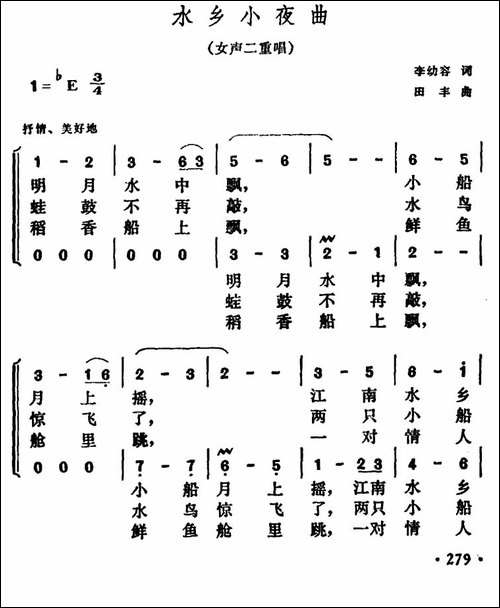 水乡小夜曲
（女声二重唱）
1=♭E 3/4
李幼容 词
田丰 曲
抒情、美好地
1 - 2 | 3 - 6 3 | 5 - 6 | 5 - - | 6 - 5
明月水中飘，小船
蛙鼓不再敲，水鸟
稻香船上飘，鲜鱼
0 0 0 | 0 0 0 | 3 - 3 | 2 - 1 | 2 - -
明月水中飘，
蛙鼓不再敲，
稻香船上飘，
3 - 1 6 | 2 - 3 | 2 - - | 3 - 5 | 6 - i
月上摇，江南水乡
惊飞了，两只小船
舱里跳，一对情人
0 0 0 | 7 - 7 | 6 - 5 | 1 - 2 3 | 4 - 6
小船月上摇，江南水乡
水鸟惊飞了，两只小船
鲜鱼舱里跳，一对情人
· 279 ·